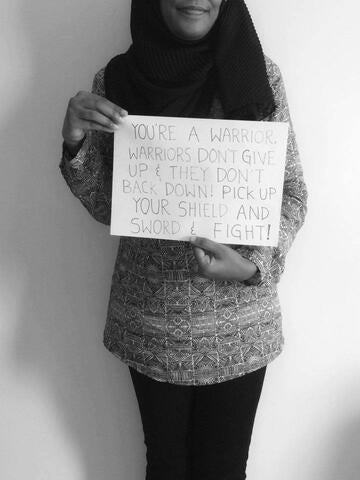 YOU'RE A WARRIOR.
WARRIORS DON'T GIVE
UP & THEY DON'T
BACK DOWN! PICK UP
YOUR SHIELD AND
SWORD & FIGHT!